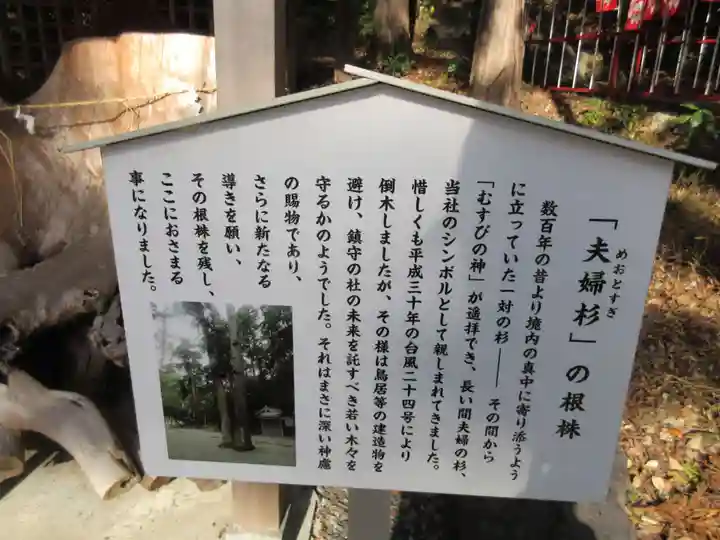 「夫婦杉」の根株
めおとすぎ
数百年の昔より境内の真中に寄り添うよう
に立っていた一対の杉―― その間から
「むすびの神」が遥拝でき、長い間夫婦の杉、
当社のシンボルとして親しまれてきました。
惜しくも平成三十年の台風二十四号により
倒木しましたが、その様は鳥居等の建造物を
避け、鎮守の杜の未来を託すべき若い木々を
守るかのようでした。それはまさに深い神慮
の賜物であり、
さらに新たなる
導きを願い、
その根株を残し、
ここにおさまる
事になりました。